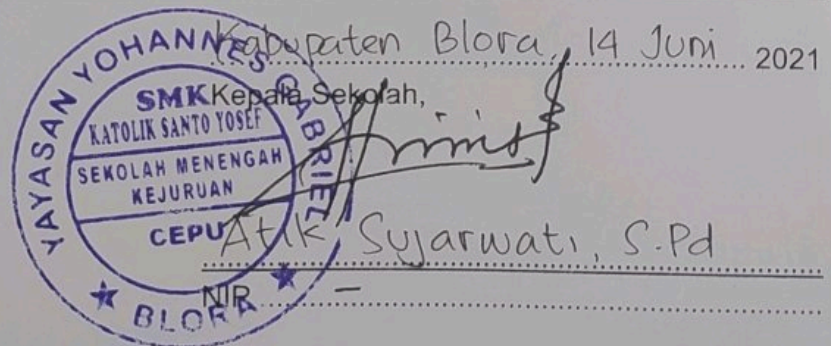 Kabupaten Blora, 14 Juni 2021
Kepala Sekolah,
Atik Sujarwati, S.Pd
NIP. -
YAYASAN YOHANNES GABRIEL
SMK
KATOLIK SANTO YOSEF
SEKOLAH MENENGAH
KEJURUAN
CEPU
★ BLORA ★